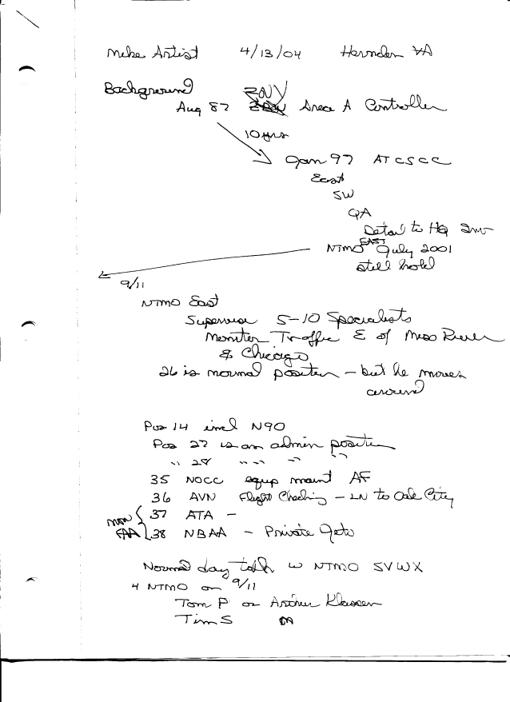 Mike Artist 4/13/04 Herndon VA
Background ZNY
Aug 87 Area A Controller
10 yrs
Jan 97 ATCSCC
East
SW
QA
Detail to HQ 2
NTMO EAST July 2001
still hold
9/11
NTMO East
Supervise 5-10 Specialists
Monitor Traffic E of Miss River
& Chicago
26 is normal position - but he moves
around
Pos 14 incl N90
Pos 27 is an admin position
" 28 " " " "
35 NOCC equip maint AF
36 AVN Flight Checking - LN to Oak City
non 37 ATA -
FAA 38 NBAA - Private Jets
Normal day talk w NTMO SVWX
4 NTMO on 9/11
Tom P or Arthur Klassen
Tim S